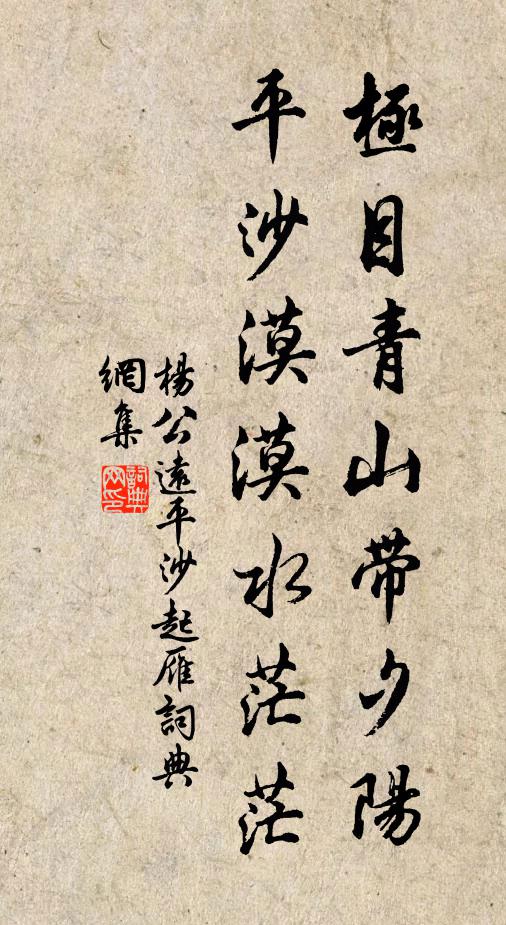 極目青山帶夕陽
平沙漠漠水茫茫
楊公遠平沙起雁詞典
網集
詞典網印